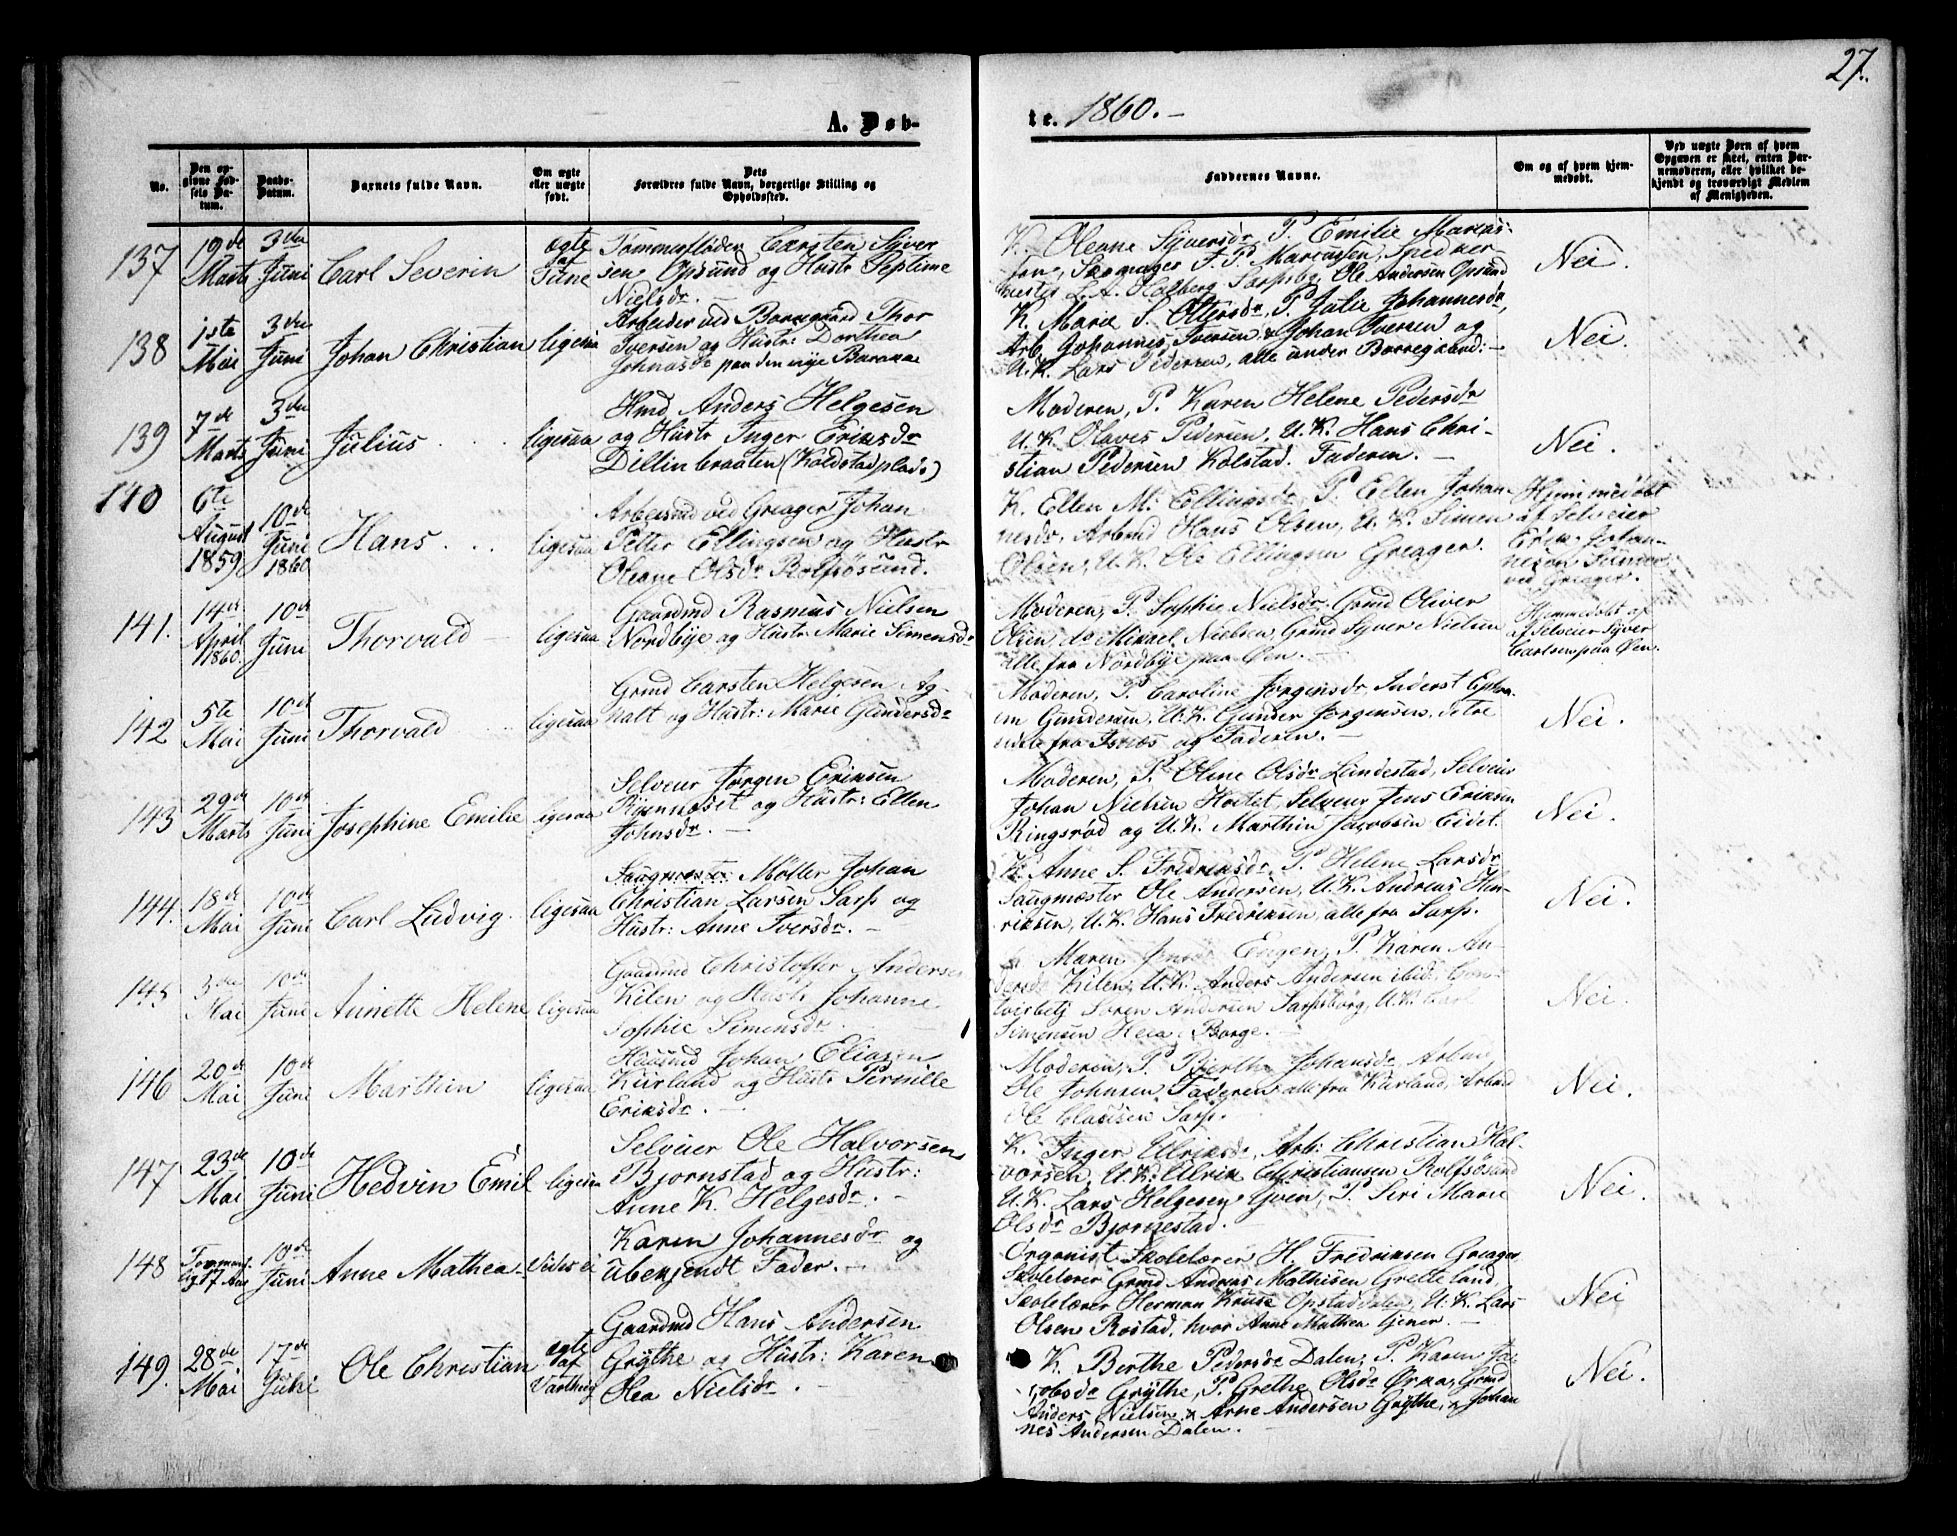 27.
A. Døb-
te. 1860.-
No.
Den op-
givne Fød-
sels Da-
tum.
Daabs-
Datum.
Barnets fulde Navn.
Om ægte
eller uægte
født.
Dets
Forældres fulde Navn, borgerlige Stilling og
Opholdssted.
Faddernes Navne.
Om og af hvem hjem-
medøbt.
Ved uægte Børn af hvem
Opgaven er skeet, enten Bar-
nemoderen, eller hvilket be-
kjendt og troværdigt Medlem
af Menigheden.
137
19de
Marts
3die
Juni
Carl Severin
ægte
af
Tune
Tømmerfløder Carsten Syver
sen Opsund og Hustr Septime
Nielsdr.
K. Oleane Syversdr, P. Emilie Marcus-
sen, Skogmager F. P. Marcussen,
L. A. Halberg Sarpsbg, Ole Andersen Opsund
Nei.
138
1ste
Mai
3die
Juni
Johan Christian
ligesaa
Arbeider ved Borregaard Thor
Iversen og Hustr: Dorthea
Johnasdr paa den nye Barakke
K. Marie S. Ottersdr, P. Julie Johannesdr,
Arb. Johannes Iversen & Johan Iversen og
U.K. Lars Pedersen, alle under Borregaard:-
Nei.
139
7de
Marts
3die
Juni
Julius
ligesaa
Hmd Anders Helgesen
og Hustr Inger Eriksdr
Dillinbraaten (Kolstadplads)
Moderen, P. Karen Helene Pedersdr
U.K. Olaves Pedersen, U.K. Hans Chri-
stian Pedersen Kolstad. Faderen.
Nei.
140
6te
August
1859
10de
Juni
1860
Hans
ligesaa
Arbeismd ved Greager Johan
Petter Ellingsen og Hustr
Oleane Olsdr Rolfsøsund.
K. Ellen M. Ellingsdr, P. Ellen Johan-
nesdr, Arbmd Hans Olsen, U.K. Simen
Olsen, U.K. Ole Ellingsen Greager.
Hjemmedøbt
af Selveier
Erik Johan-
nesen
ved Greager.
141.
14de
April
1860.
10de
Juni
Thorvald
ligesaa
Gaardmd Rasmus Nielsen
Nordbye og Hustr: Marie Simensdr
Moderen, P. Sophie Nielsdr, Grmd Oliver
Olsen, do Mikael Nielsen, Grmd Syver Nielsen
alle fra Nordbye paa Øen.
Hjemmedøbt af
af Selveier Syver
Carlsen paa Øen.
142
5te
Mai
10de
Juni
Thorvald
ligesaa
Grmd Carsten Helgesen Ag-
nalt og Hustr: Marie Gundersdr
Moderen, P. Caroline Jørgensdr, Inderst Ephra-
im Gundersen, U.K. Gunder Jørgensen, disse
alle fra Isnæs og Faderen.
Nei.
143
29de
Marts
10de
Juni
Josephine Emilie
ligesaa
Selveier Jørgen Eriksen
og Hustr: Ellen
Johnsdr.
Moderen, P. Oline Olsdr Lundestad, Selveier
Johan Nielsen, Selveier Jens Eriksen
Ringsrød og U.K. Marthin Jacobsen Eidet.
Nei.
144.
18de
Mai
10de
Juni
Carl Ludvig.
ligesaa
Saugmester Møller Johan
Christian Larsen Sarp og
Hustr: Anne Iversdr.
K. Anne S. Fredriksdr, P. Helene Larsdr
Saugmester Ole Andersen, U.K. Andreas Hen-
riksen, U.K. Hans Fredriksen, alle fra Sarp.
Nei.
145
3die
Mai
10de
Juni
Annette Helene
ligesaa
Gaardmd Christoffer Andersen
Kilen og Hustr Johanne
Sophie Simensdr.
Maren Jensdr Engen, P. Karen An-
dersdr Kilen, U.K. Anders Andersen ibid:
Søren Andersen Sarpsborg, U.K. Carl
Simensen Heea i Borge.
Nei.
146
20de
Mai
10de
Juni
Marthin
ligesaa
Huusmd Johan Eliasen
Kurland og Hustr Pernille
Eriksdr.
Moderen, P. Bierthe Johansdr, Arbmd
Ole Johnsen, Faderen, alle fra Kurland, Arbmd
Ole Clausen Sarp.
Nei.
147
23de
Mai
10de
Juni
Hedvin Emil
ligesaa
Selveier Ole Halvorsen
Bjørnstad og Hustr:
Anne K. Helgesdr.
K. Inger Ulriksdr, Arb: Christian Hal-
vorsen, U.K. Ulrik Christiansen Rolfsøsund
U.K. Lars Helgesen Yven, P. Siri Marie
Olsdr Bjørnestad.
Nei.
148
10de
Juni
Anne Mathea
Vides ei
Karen Johannesdr og
ubekjendt Fader.
Organist Skolelærer H. Fredriksen Greager,
Skolelærer Grmd Andreas Mathisen Gretteland,
Skolelærer Herman Kruse Opstaddalen, U.K. Lars
Olsen Rostad, hvor Anne Mathea tjener.
Nei
149.
28de
Mai
17de
Juni
Ole Christian
ægte
af
Varteig
Gaardmd Hans Andersen
Grythe og Hustr: Karen
Olea Nielsdr.
K. Berthe Pedersdr Dalen, P. Karen Ja-
cobsdr Grythe, P. Grethe Olsdr, Grmd
Anders Nielsen & Arne Andersen Grythe, & Johan
nes Andersen Dalen.
Nei.